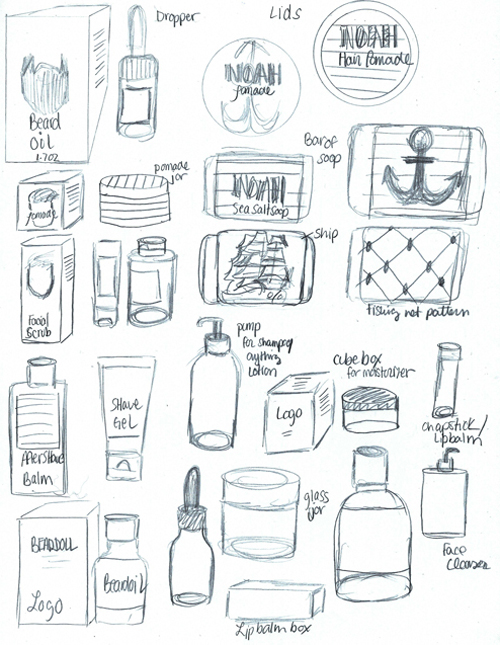 Dropper
Lids
NOAH
pomade
NOAH
Hair Pomade
Beard
Oil
1.7oz
pomade
jar
Bar of
soap
Pomade
NOAH
Sea salt soap
ship
Facial
Scrub
fishing net pattern
pump
for shampoo/
anything
lotion
cube box
for moisturizer
Shave
Gel
Logo
chapstick/
lipbalm
AfterShave
Balm
glass
jar
BEARDOLL
Beardoil
Logo
Face
Cleanser
Lip balm box